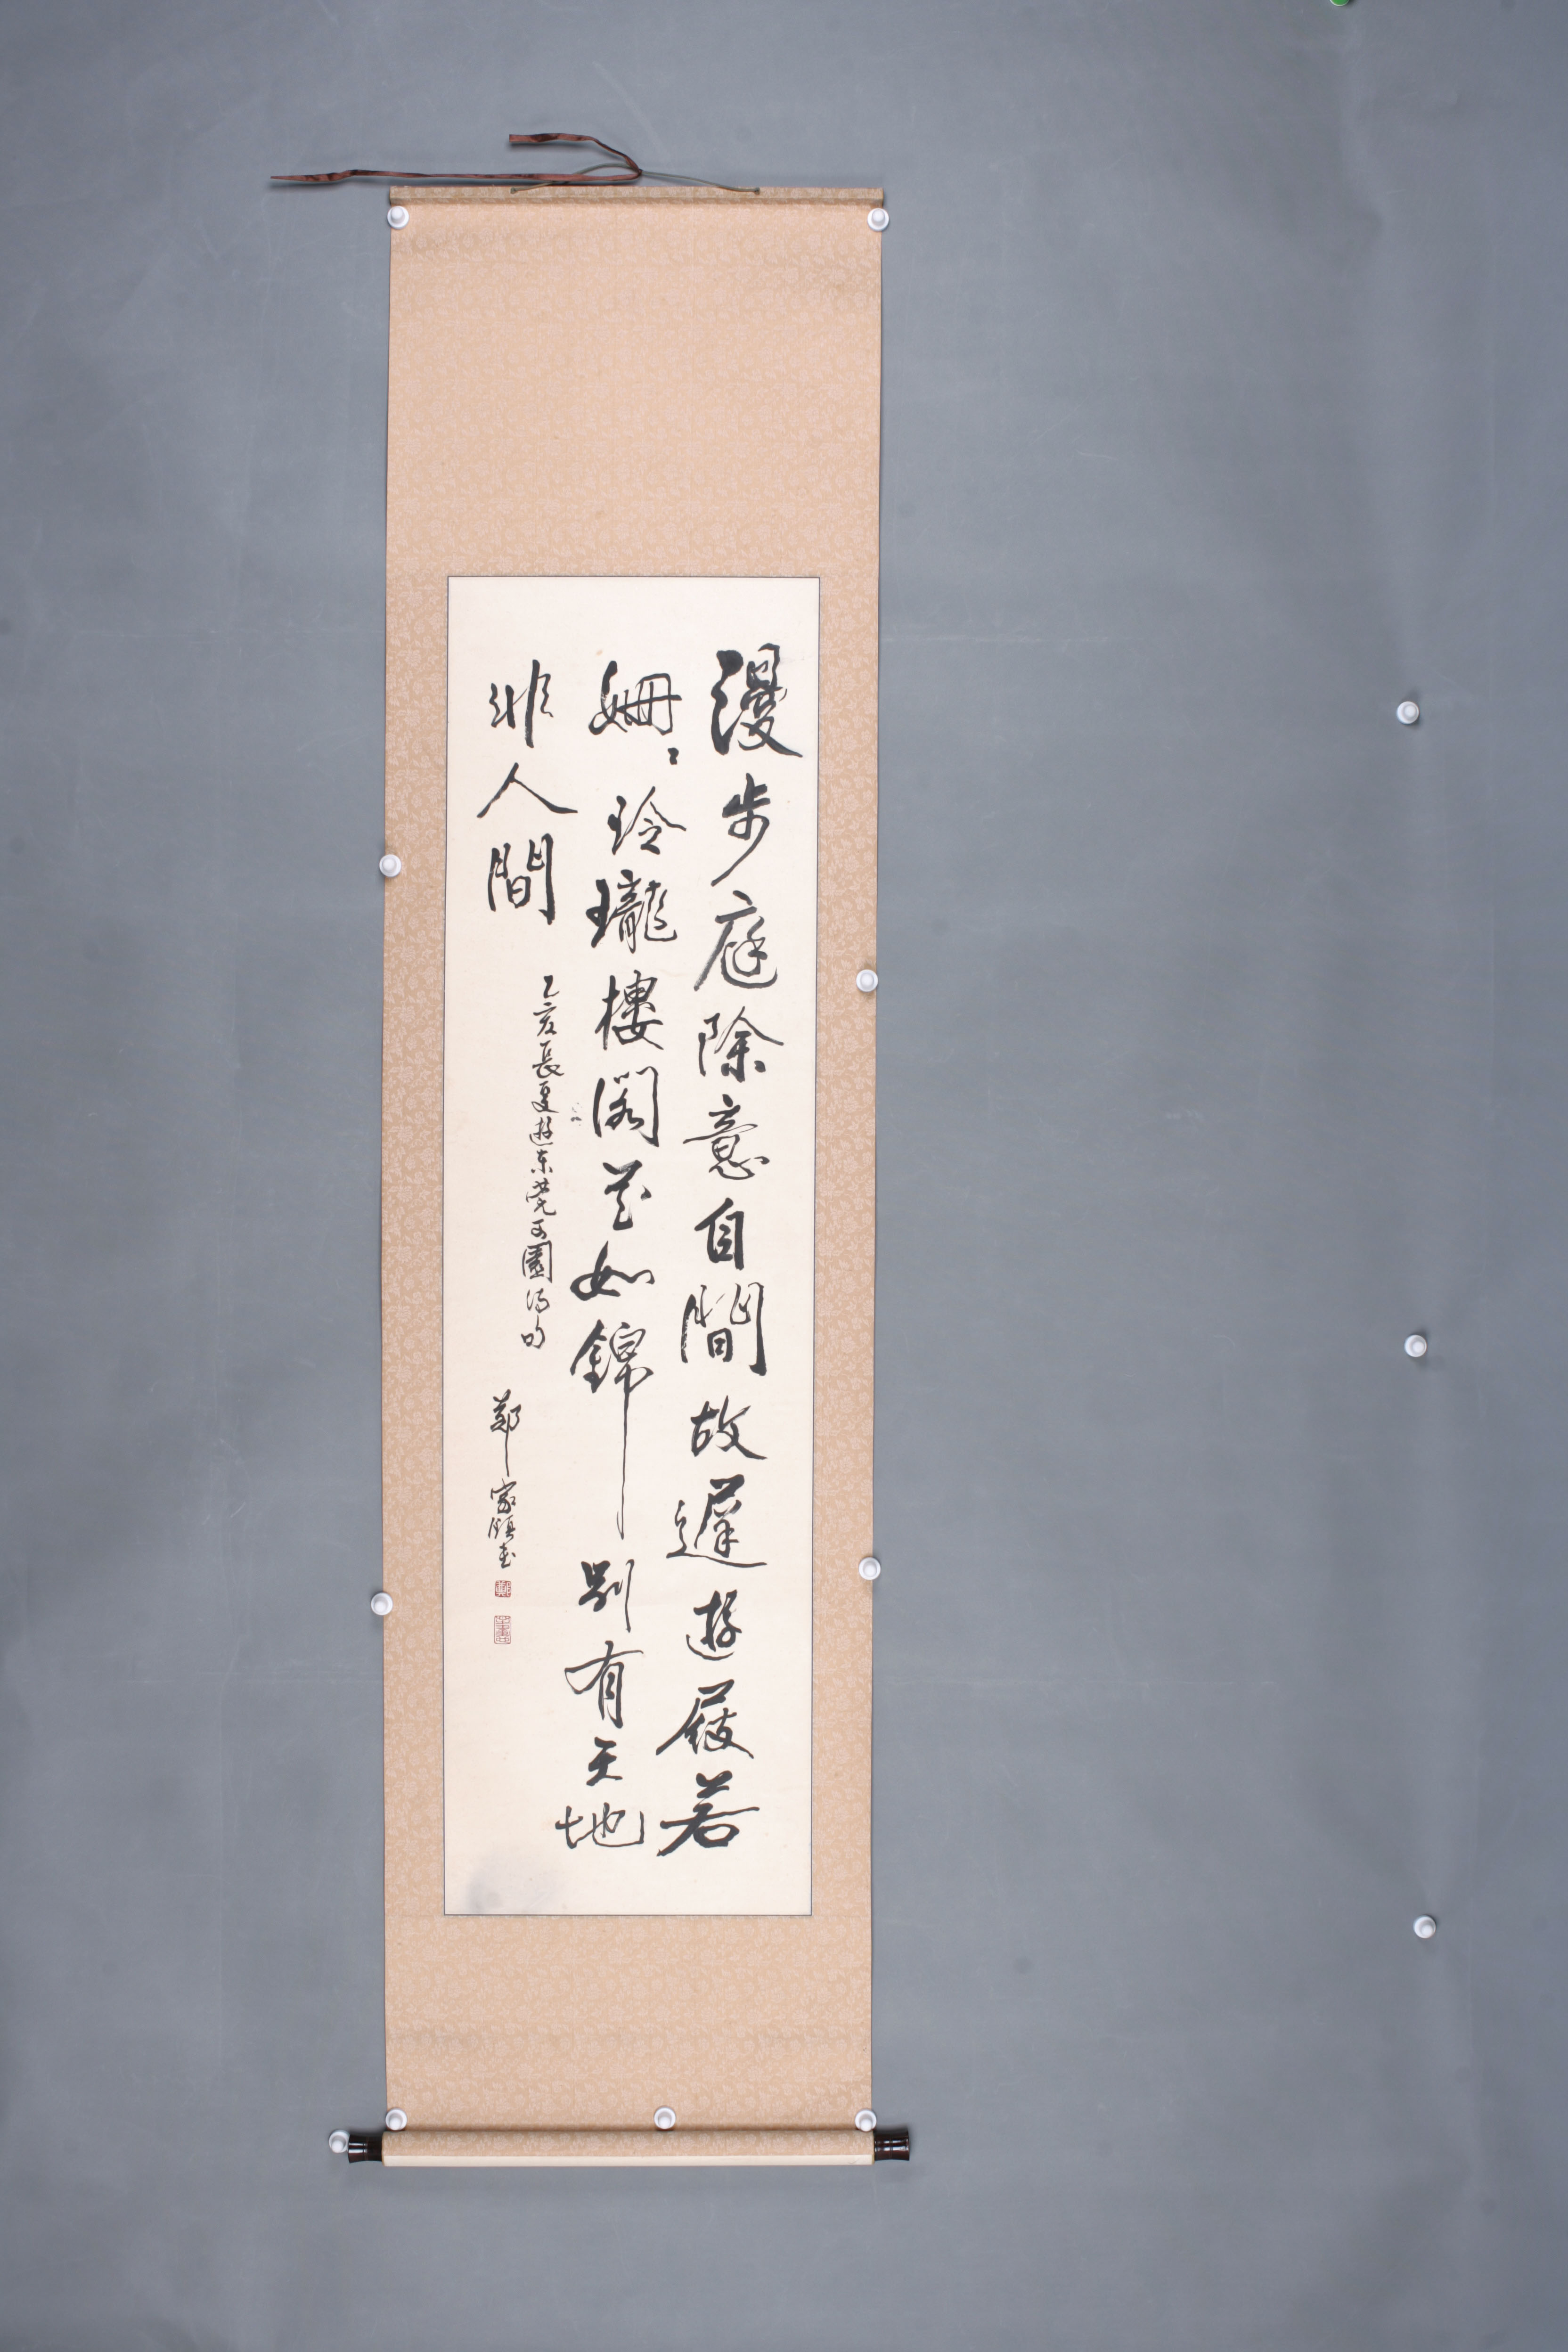 漫步庭除意自閒故遲遊屐若
姍〻玲瓏樓閣花如錦別有天地
非人間
乙亥長夏遊東莞可園得句
鄭家鎮書